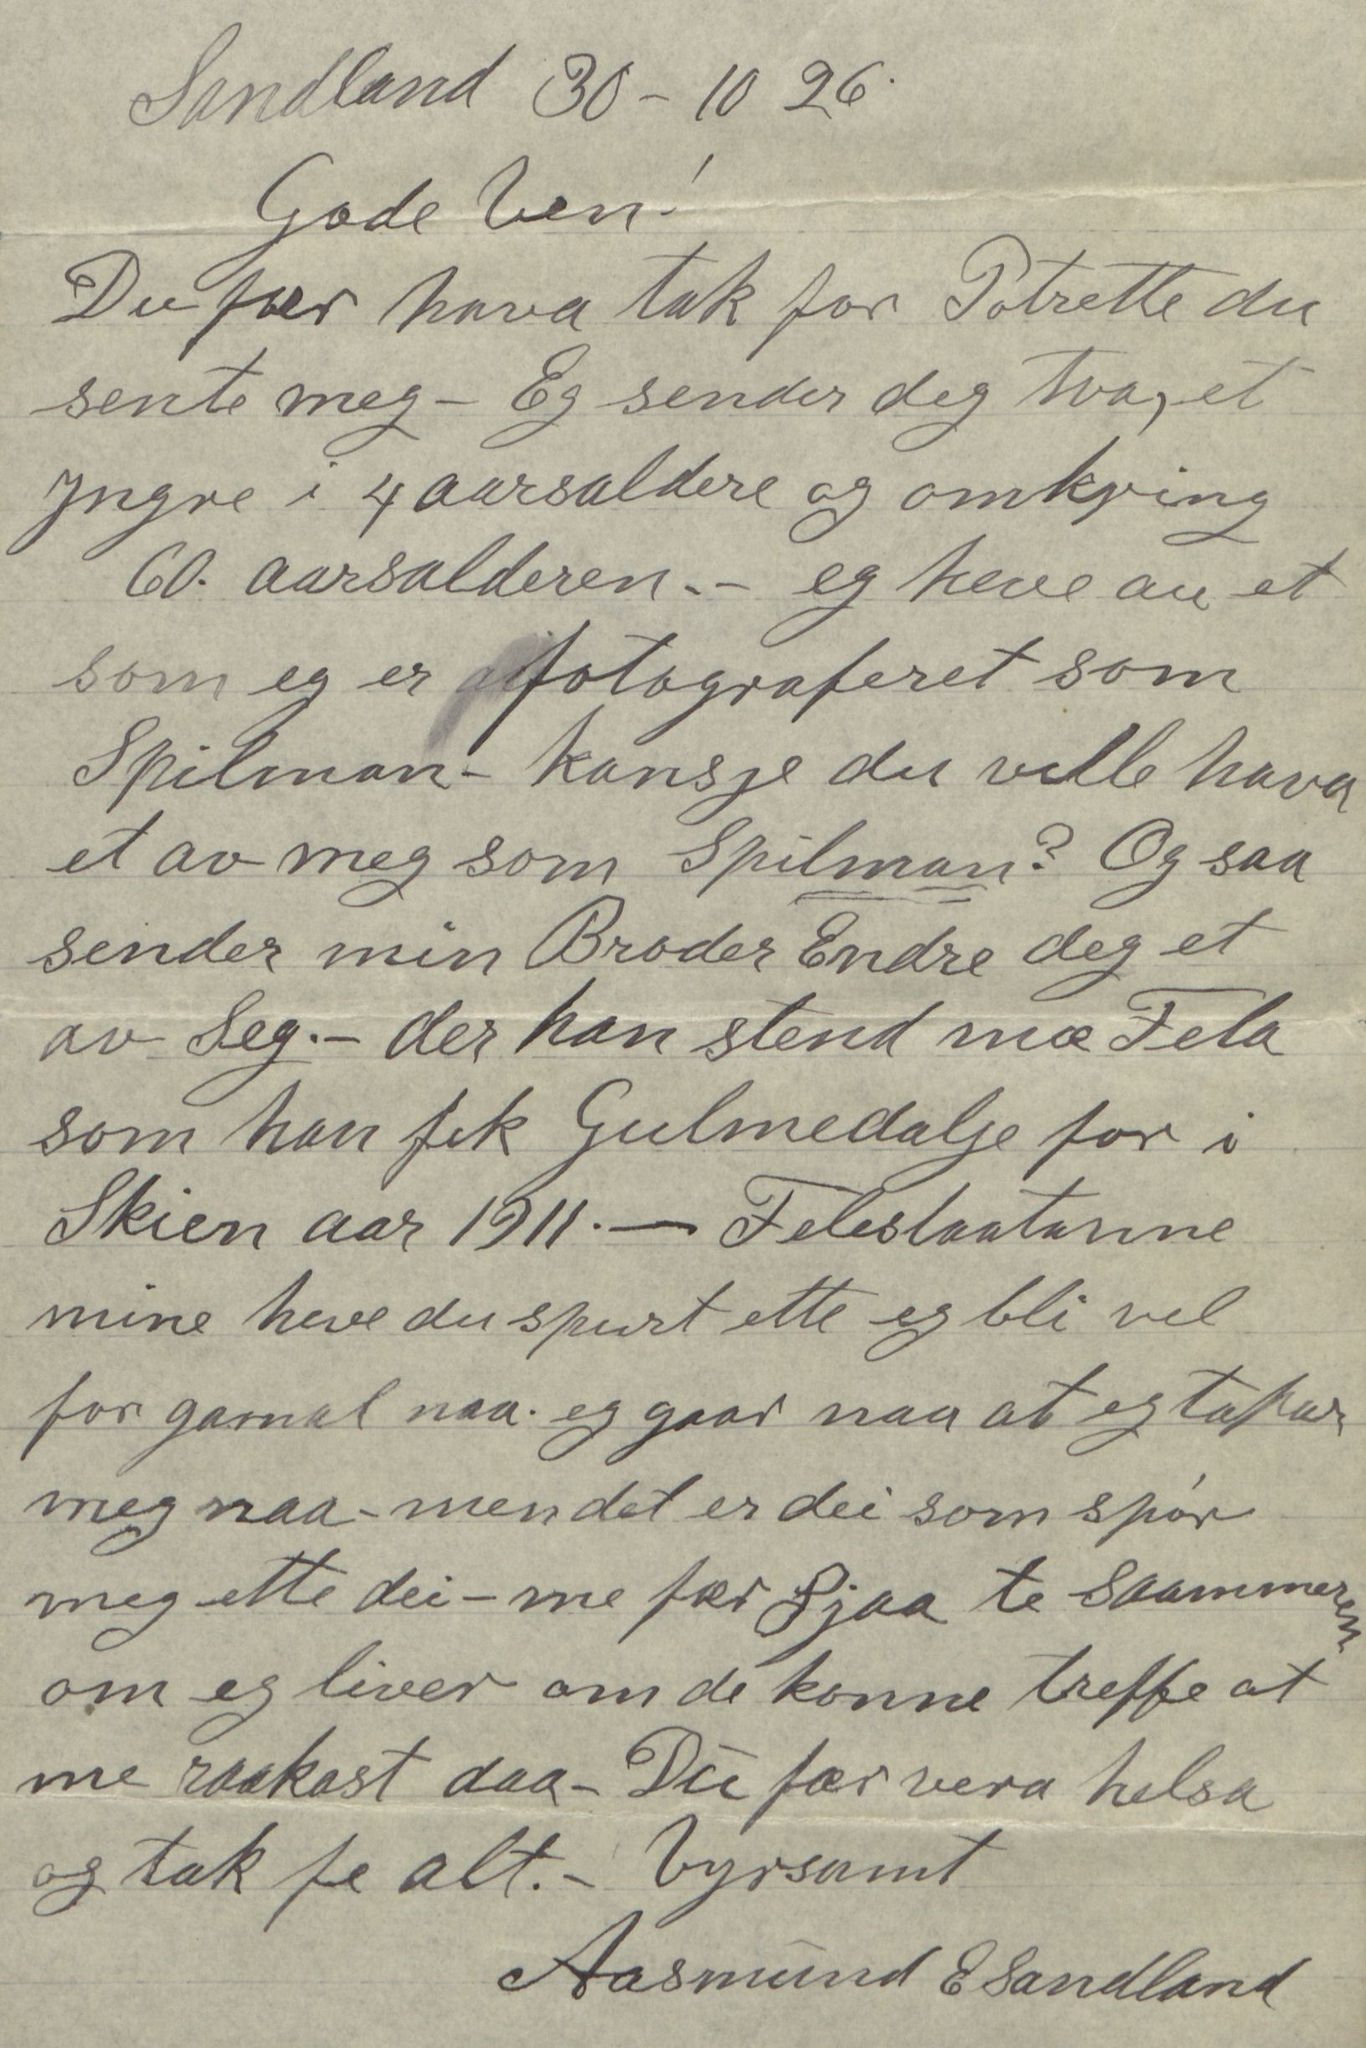 Sandland 30 - 10 26.
Gode Ven!
Du fær hava tak for Potrette du
sente meg - Eg sender deg tvo, et
yngre i 4 aarsaldere og omkring
60. aarsalderen. - eg heve au et
som eg er fotograferet som
Spilman - kansje du ville hava
et av meg som Spilman? Og saa
sender min Broder Endre deg et
av Seg. - der han stend mæ Fela
som han fek Gulmedalje for i
Skien aar 1911. — Feleslaatanne
mine heve du spurt ette eg bli vel
for gamal naa. eg gaar naa at eg tapar
meg naa - men det er dei som spór
meg ette dei - me fær Sjaa te Saammeren
om eg liver om de konne treffe at
me raakast daa - Du fær vera helsa
og tak fe alt. - Vyrsamt
Aasmund E Sandland